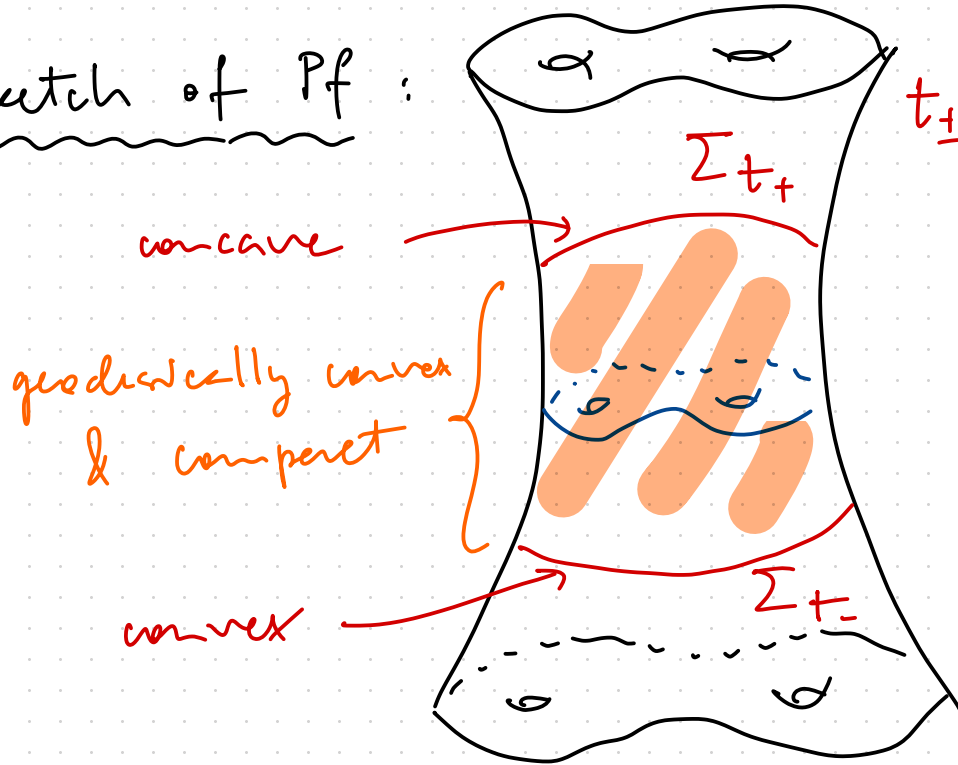 etch of Pf :
t₊
Σ t₊
concave
geodesically convex
& compact
convex
Σ t₋